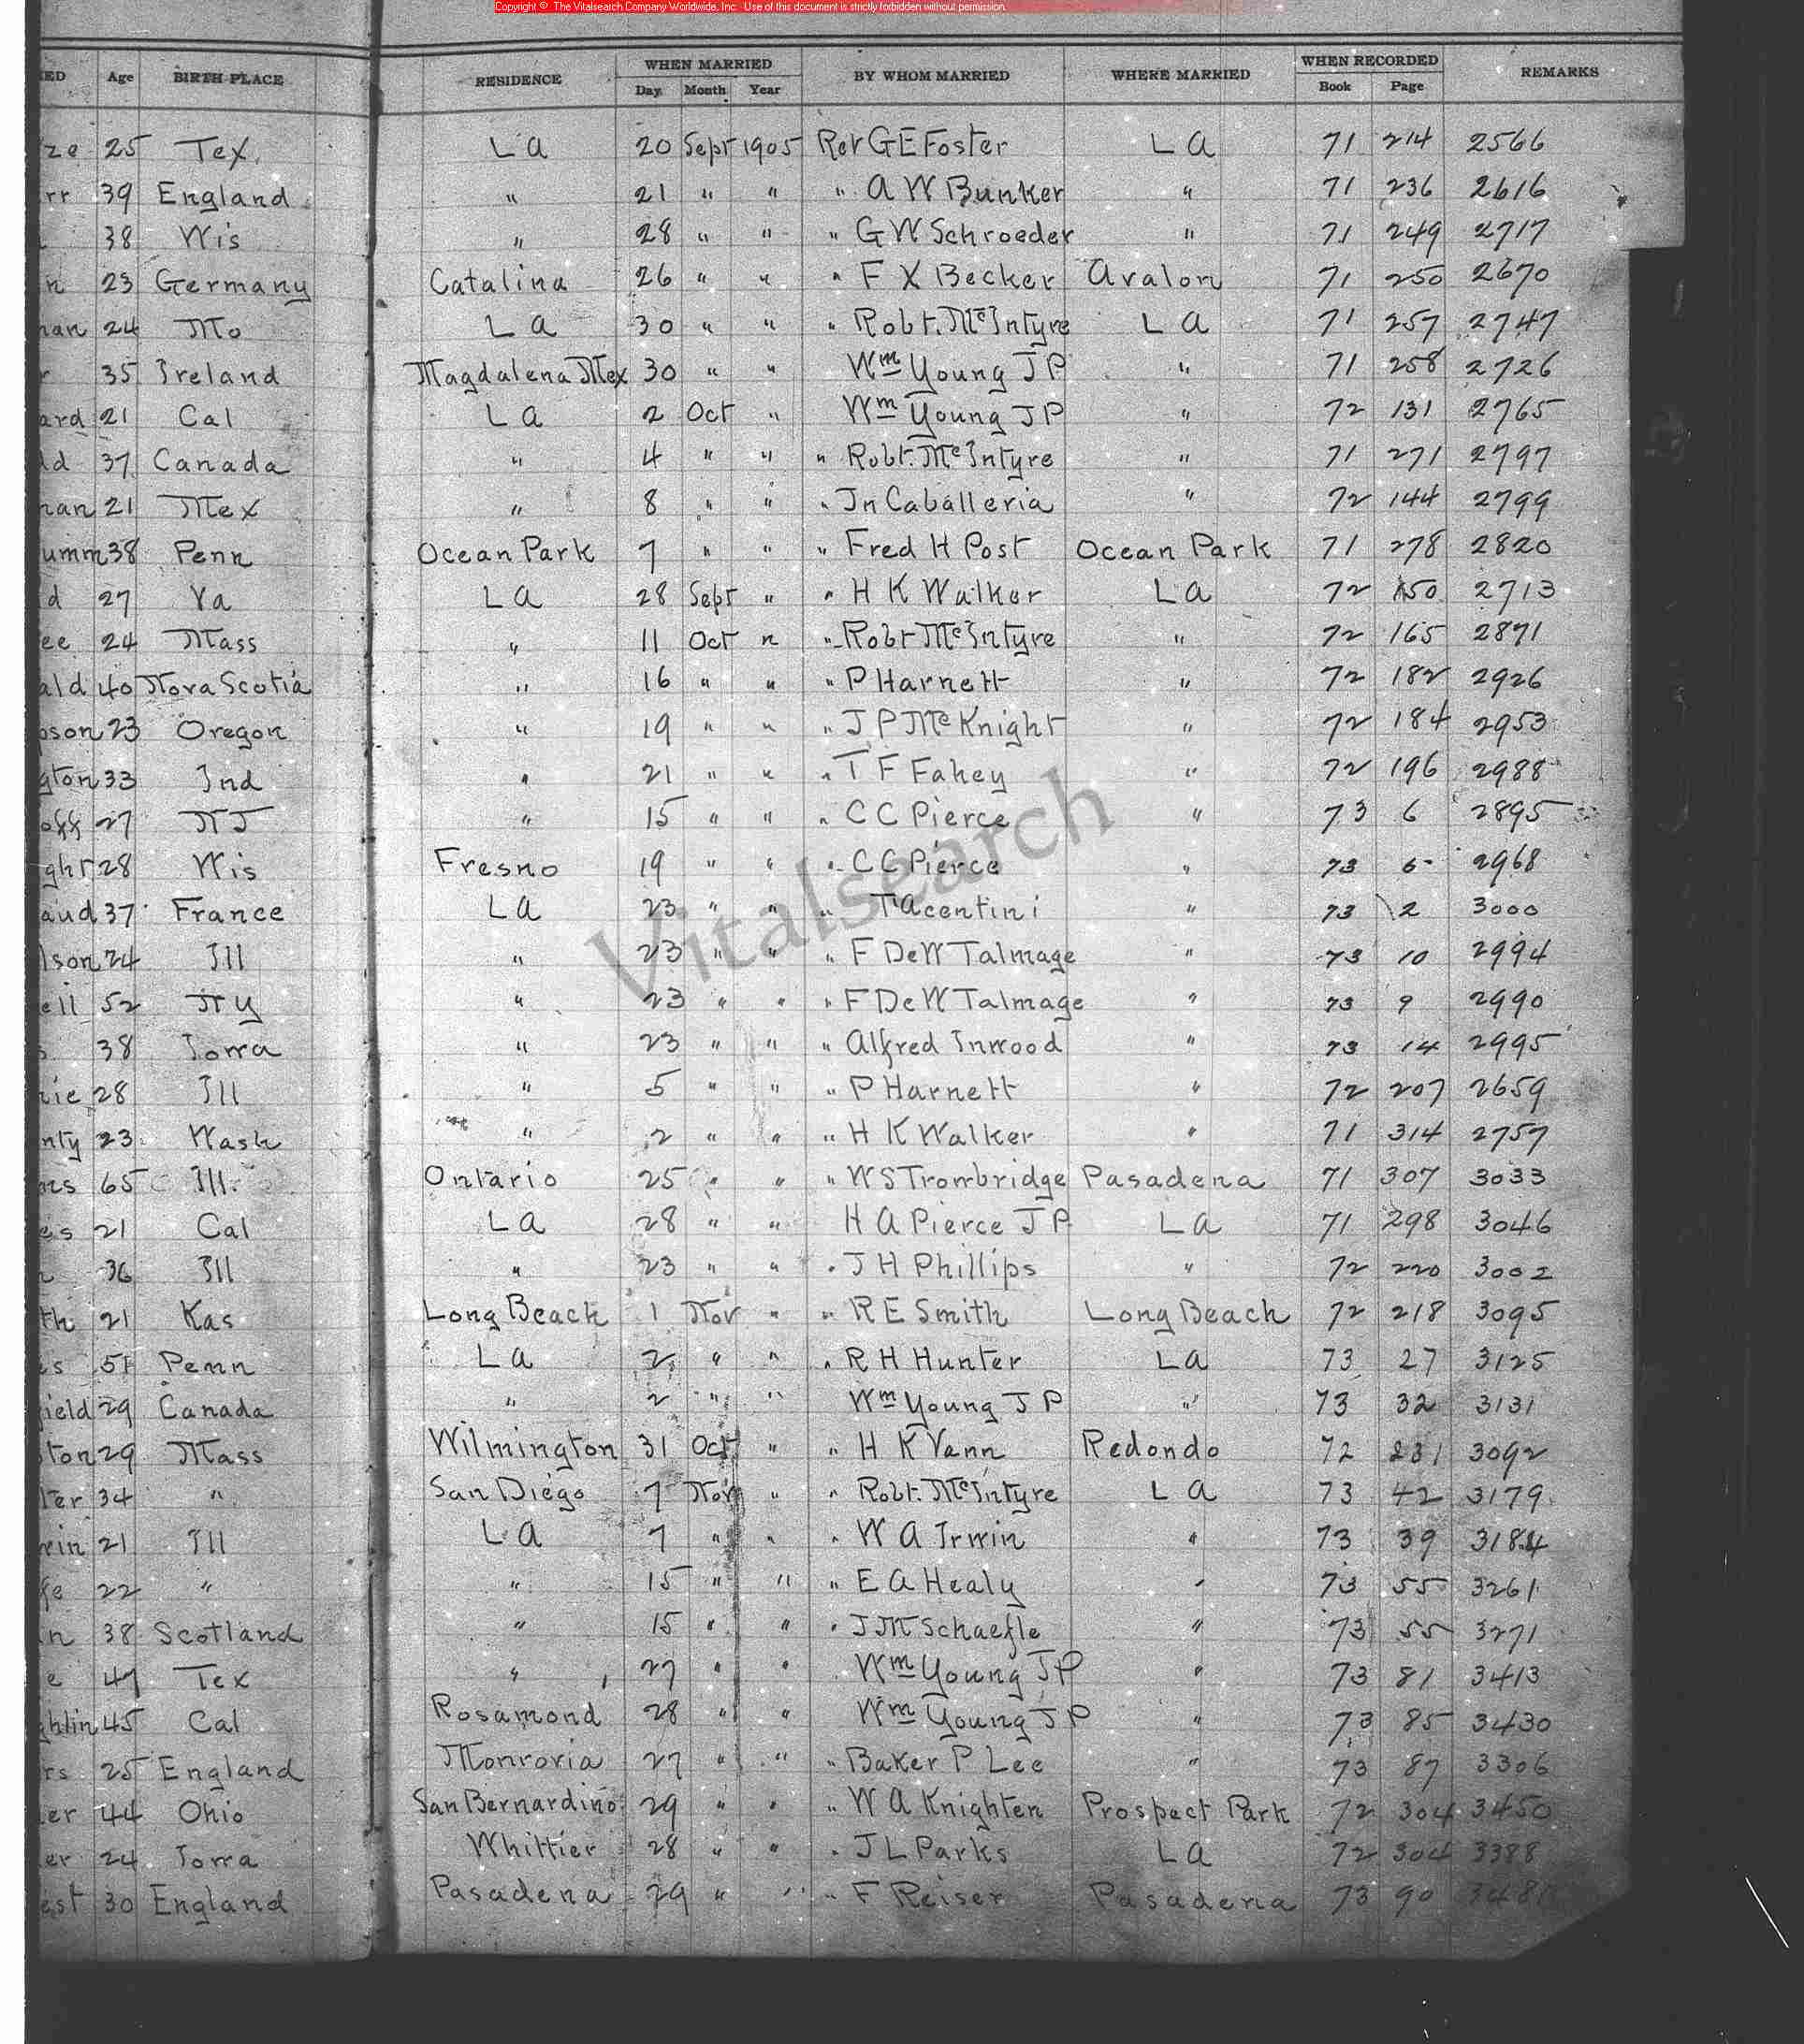 Copyright © The Vitalsearch Company Worldwide, Inc. Use of this document is strictly forbidden without permission.
WHEN MARRIED WHEN RECORDED
IED Age BIRTH PLACE RESIDENCE BY WHOM MARRIED WHERE MARRIED REMARKS
Day Month Year Book Page
ze 25 Tex. L A 20 Sept 1905 Rev G E Foster L A 71 214 2566
rr 39 England " 21 " " " A W Bunker " 71 236 2616
38 Wis " 28 " " " G W Schroeder " 71 249 2717
n 23 Germany Catalina 26 " " " F X Becker Avalon 71 250 2670
nan 24 Mo L A 30 " " " Robt. McIntyre L A 71 257 2747
r 35 Ireland Magdalena Mex 30 " " Wm Young J P " 71 258 2726
ard 21 Cal L A 2 Oct " Wm Young J P " 72 131 2765
ld 37 Canada " 4 " " " Robt. McIntyre " 71 271 2797
nan 21 Mex " 8 " " " Jn Caballeria " 72 144 2799
umm 38 Penn Ocean Park 7 " " " Fred H Post Ocean Park 71 278 2820
d 27 Va L A 28 Sept " " H K Walker L A 72 150 2713
ee 24 Mass " 11 Oct " " Robt McIntyre " 72 165 2871
ald 40 Nova Scotia " 16 " " " P Harnett " 72 182 2926
oson 23 Oregon " 19 " " " J P McKnight " 72 184 2953
gton 33 Ind " 21 " " " T F Fahey " 72 196 2988
off 27 N J " 15 " " " C C Pierce " 73 6 2895
ght 28 Wis Fresno 19 " " " C C Pierce " 73 2968
aud 37 France L A 23 " " " T Acentini " 73 2 3000
lson 24 Ill " 23 " " " F DeW Talmage " 73 10 2994
ell 52 N Y " 23 " " " F DeW Talmage " 73 9 2990
s 38 Iowa " 23 " " " Alfred Inwood " 73 14 2995
nie 28 Ill " 5 " " " P Harnett " 72 207 2659
nty 23 Wash " 2 " " " H K Walker " 71 314 2757
ns 65 Ill. Ontario 25 " " " W S Trowbridge Pasadena 71 307 3033
es 21 Cal L A 28 " " H A Pierce J P L A 71 298 3046
36 Ill " 23 " " " J H Phillips " 72 220 3002
th 21 Kas Long Beach 1 Nov " " R E Smith Long Beach 72 218 3095
es 51 Penn L A 2 " " " R H Hunter L A 73 27 3125
field 29 Canada " 2 " " Wm Young J P " 73 32 3131
ton 29 Mass Wilmington 31 Oct " " H K Vann Redondo 72 231 3092
ter 34 " San Diego 7 Nov " " Robt. McIntyre L A 73 42 3179
win 21 Ill L A 7 " " " W A Irwin " 73 39 3184
fe 22 " " 15 " " " E A Healy " 73 55 3261
n 38 Scotland " 15 " " " J M Schaefle " 73 55 3271
e 47 Tex " 27 " " Wm Young J P " 73 81 3413
ghlin 45 Cal Rosamond 28 " " Wm Young J P " 73 85 3430
rs 25 England Monrovia 27 " " " Baker P Lee " 73 87 3306
er 44 Ohio San Bernardino 29 " " " W A Knighten Prospect Park 72 304 3450
er 24 Iowa Whittier 28 " " " J L Parks L A 72 304 3388
est 30 England Pasadena 29 " " " F Reiser Pasadena 73 90
Vitalsearch